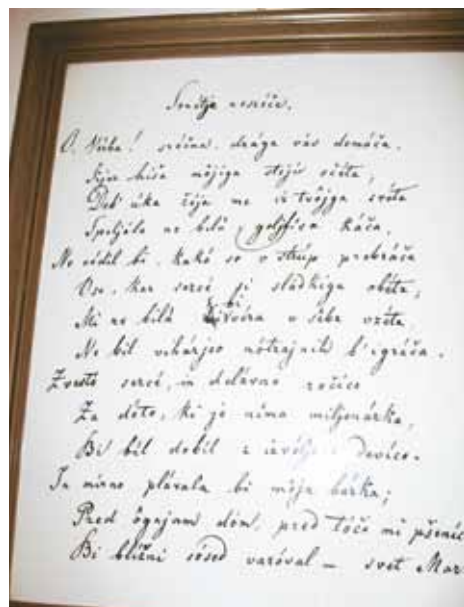 Sonetje nesréče.
O, Vérba! sréčna, drága vás domáča.
Kjer hiša mójiga stojí očéta,
Deb' úka žéja me iz tvójga svéta
Speljála ne bilá, goljfíva káča.
Ne védil bi, kakó se v strúp prebráča
Vse, kar sercé si sládkiga obéta;
Mi ne bilá bi véra v sébe vzéta,
Ne bil vihárjov nótrajnih b' igráča.
Zvestó sercé, in délavno ročíco
Za dóto, ki je níma miljonárka,
Bi bil dobíl z izvóljeno devíco.
In mírno plávala bi mója bárka;
Pred ógnjam dóm, pred tóčo mi pšeníc
Bi blížni sósed varóval – svet Mar